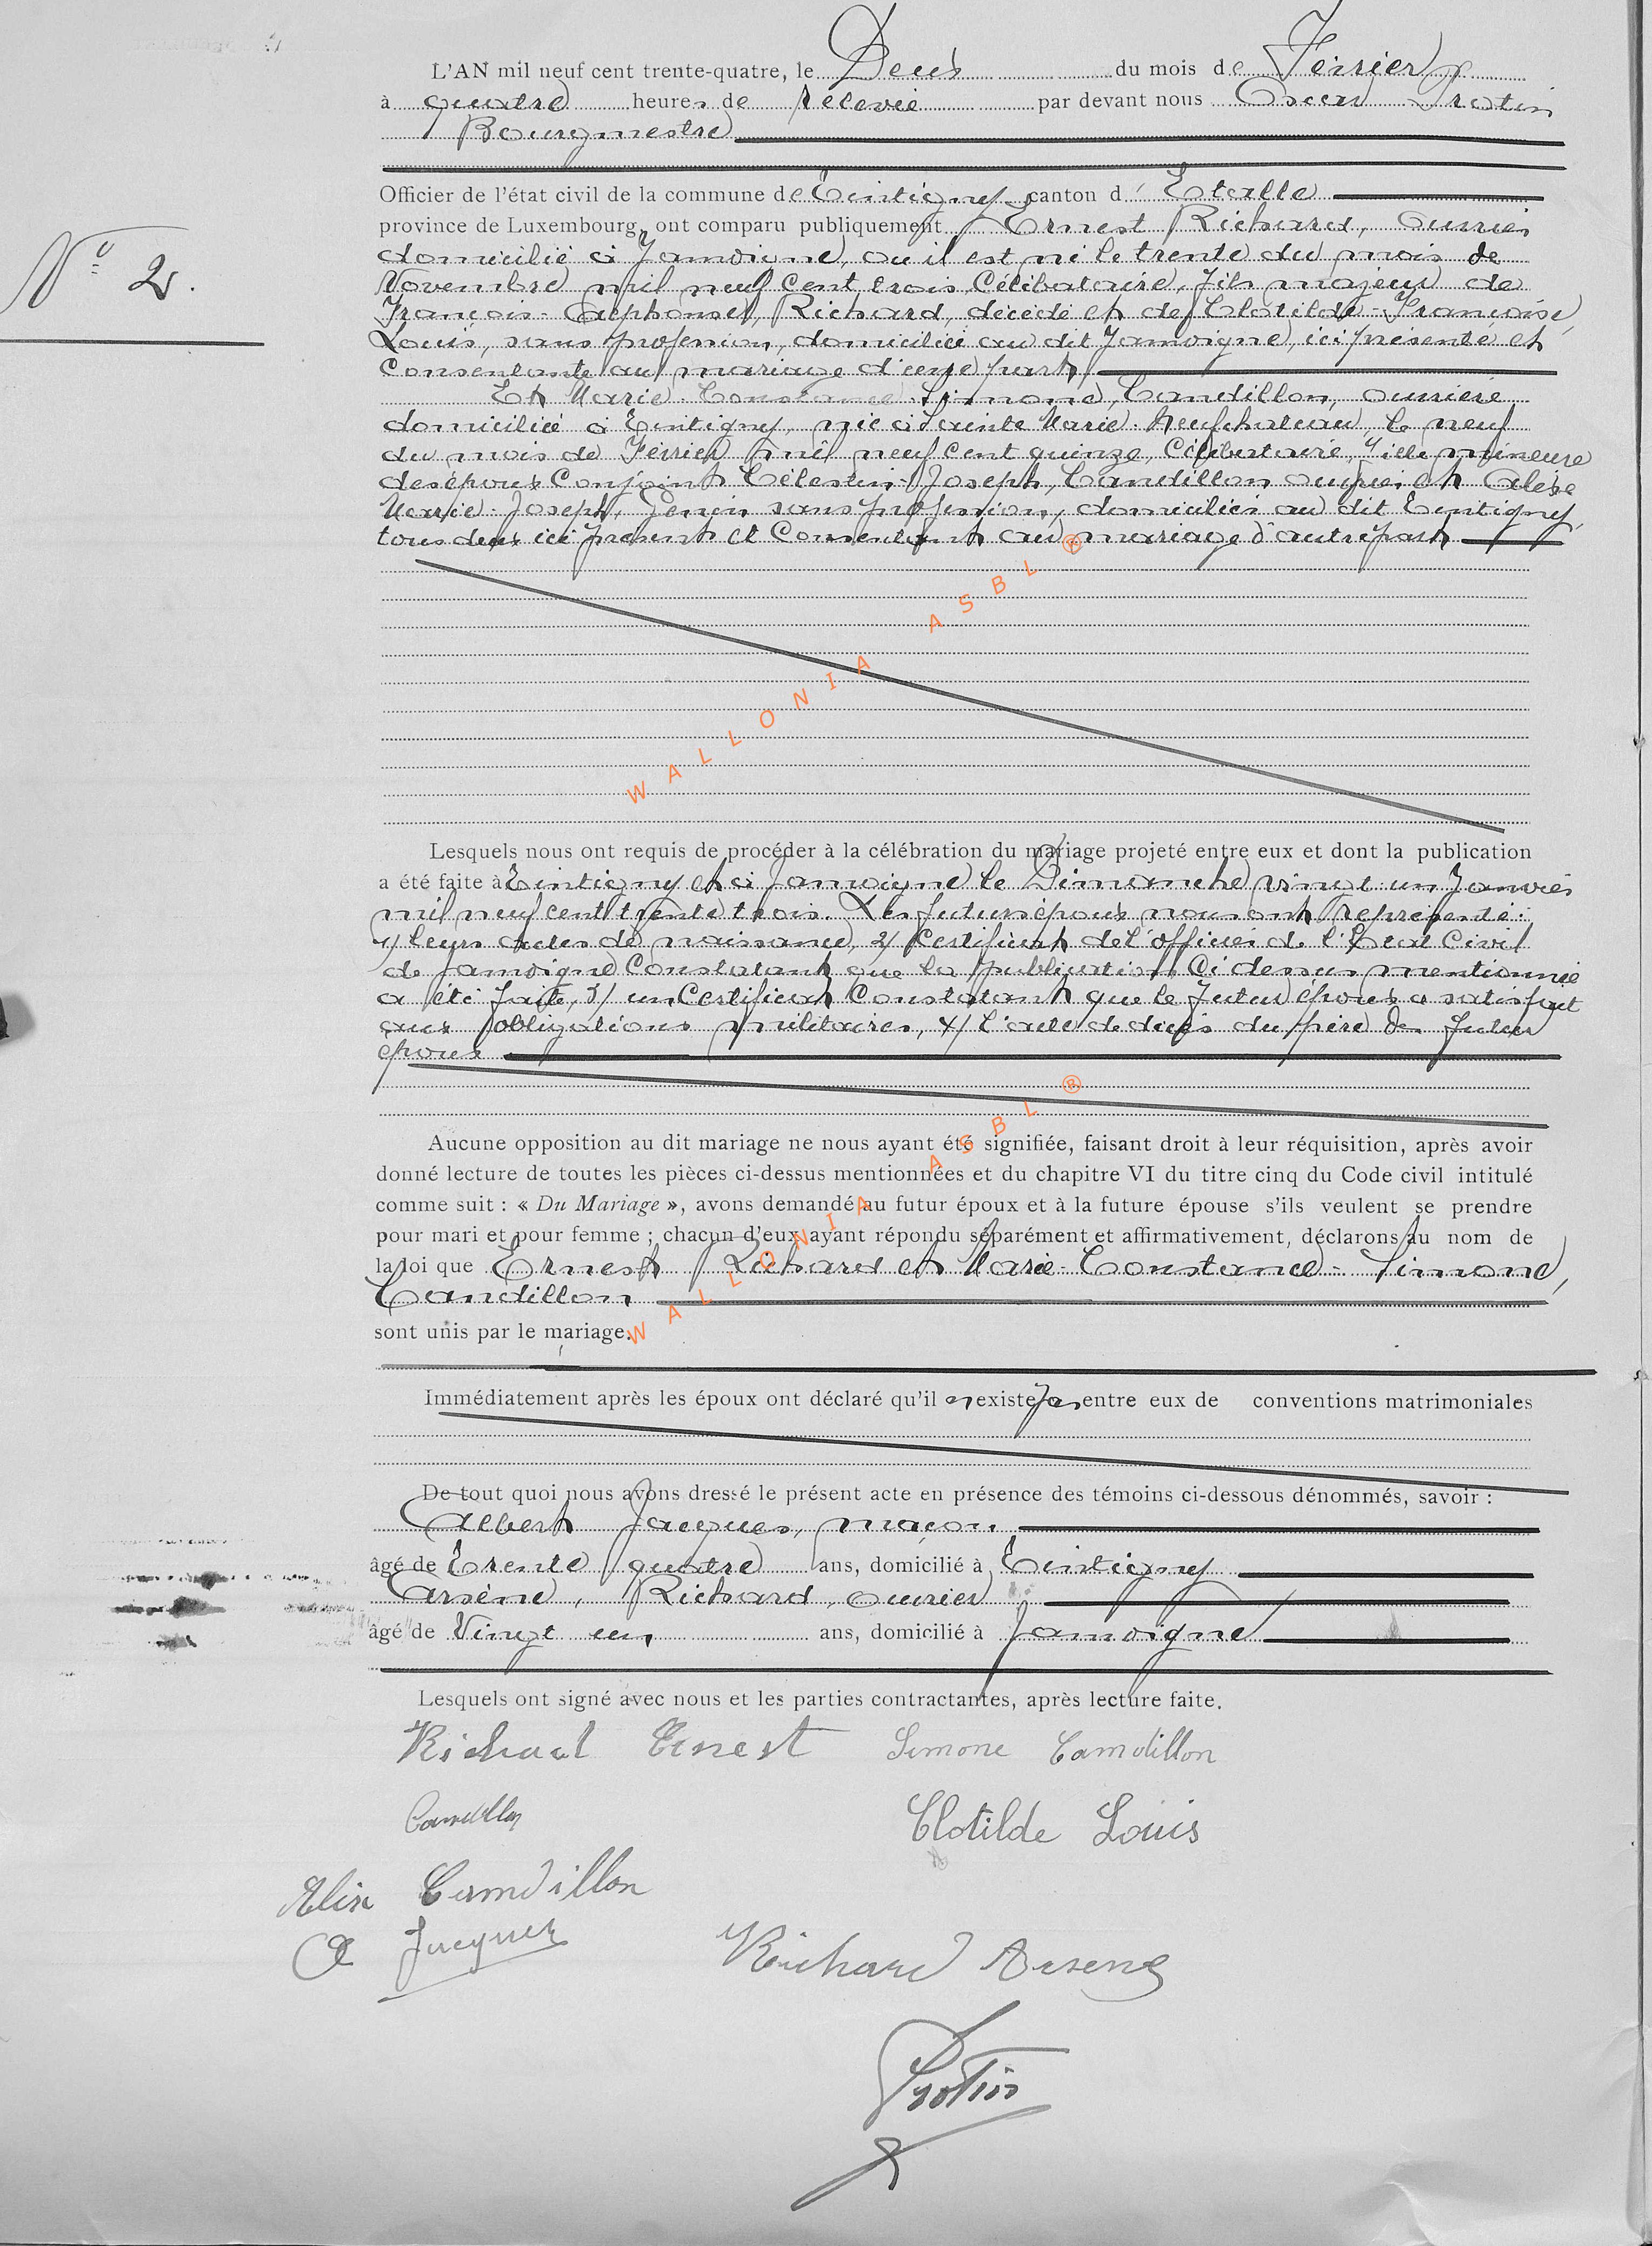 L'AN mil neuf cent trente-quatre, le Deux du mois de Février
à quatre heures de relevée par devant nous Oscar Protin
Bourgmestre
Officier de l'état civil de la commune de Tintigny canton d' Etalle
province de Luxembourg, ont comparu publiquement Ernest Richard, ouvrier
N° 2.
domicilié à Jamoigne, où il est né le trente du mois de
Novembre mil neuf cent trois, Célibataire, fils majeur de
François-Alphonse, Richard, décédé et de Clotilde-Françoise,
Louis, sans profession, domiciliée au dit Jamoigne, ici présente et
Consentante au mariage d'une part
Et Marie-Constance-Simone, Camdillon, ouvrière
domiciliée à Tintigny, née à Sainte Marie-Neufchateau, le neuf
du mois de Février mil neuf cent quinze, Célibataire, fille mineure
des époux Conjoints Célestin-Joseph, Camdillon ouvrier et
Marie-Joseph, sans profession, domiciliés au dit Tintigny,
tous deux ici présents et Consentants au mariage d'autre part
WALLONIA ASBL ®
Lesquels nous ont requis de procéder à la célébration du mariage projeté entre eux et dont la publication
a été faite à Tintigny et à Jamoigne le Dimanche vingt-un Janvier
mil neuf cent trente trois. Les futurs époux nous ont représenté:
1/ leurs actes de naissance, 2/ Certificat de l'officier de l'Etat Civil
de Jamoigne Constatant que la publication Ci dessus mentionnée
a été faite, 3/ un Certificat Constatant que le futur époux a satisfait
aux obligations militaires, 4/ l'acte de décès du père du futur
époux
Aucune opposition au dit mariage ne nous ayant été signifiée, faisant droit à leur réquisition, après avoir
donné lecture de toutes les pièces ci-dessus mentionnées et du chapitre VI du titre cinq du Code civil intitulé
comme suit : « Du Mariage », avons demandé au futur époux et à la future épouse s'ils veulent se prendre
pour mari et pour femme ; chacun d'eux ayant répondu séparément et affirmativement, déclarons au nom de
la loi que Ernest Richard et Marie-Constance-Simone,
Camdillon
sont unis par le mariage.
WALLONIA ASBL ®
Immédiatement après les époux ont déclaré qu'il n'existe pas entre eux de conventions matrimoniales
De tout quoi nous avons dressé le présent acte en présence des témoins ci-dessous dénommés, savoir :
Albert Jacques, maçon
âgé de Trente quatre ans, domicilié à Tintigny
Arsène, Richard, ouvrier
âgé de Vingt un ans, domicilié à Jamoigne
Lesquels ont signé avec nous et les parties contractantes, après lecture faite.
Richard Ernest Simone Camdillon
Camdillon Clotilde Louis
Camdillon
A Jacques Richard Arsene
Protin